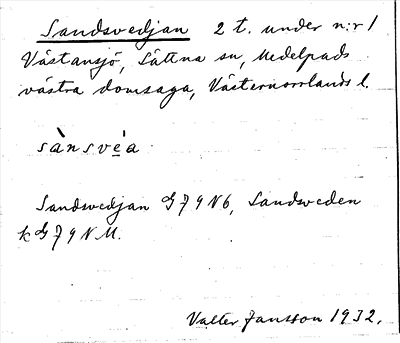 Sandsvedjan 2 t. under n:r 1
Västansjö, Sättna sn, Medelpads
västra domsaga, Västernorrlands l.
sànsvè̲a
Sandsvedjan G J 9 N 6, Sandsveden
k G J 9 N M.
Valter Jansson 1932.